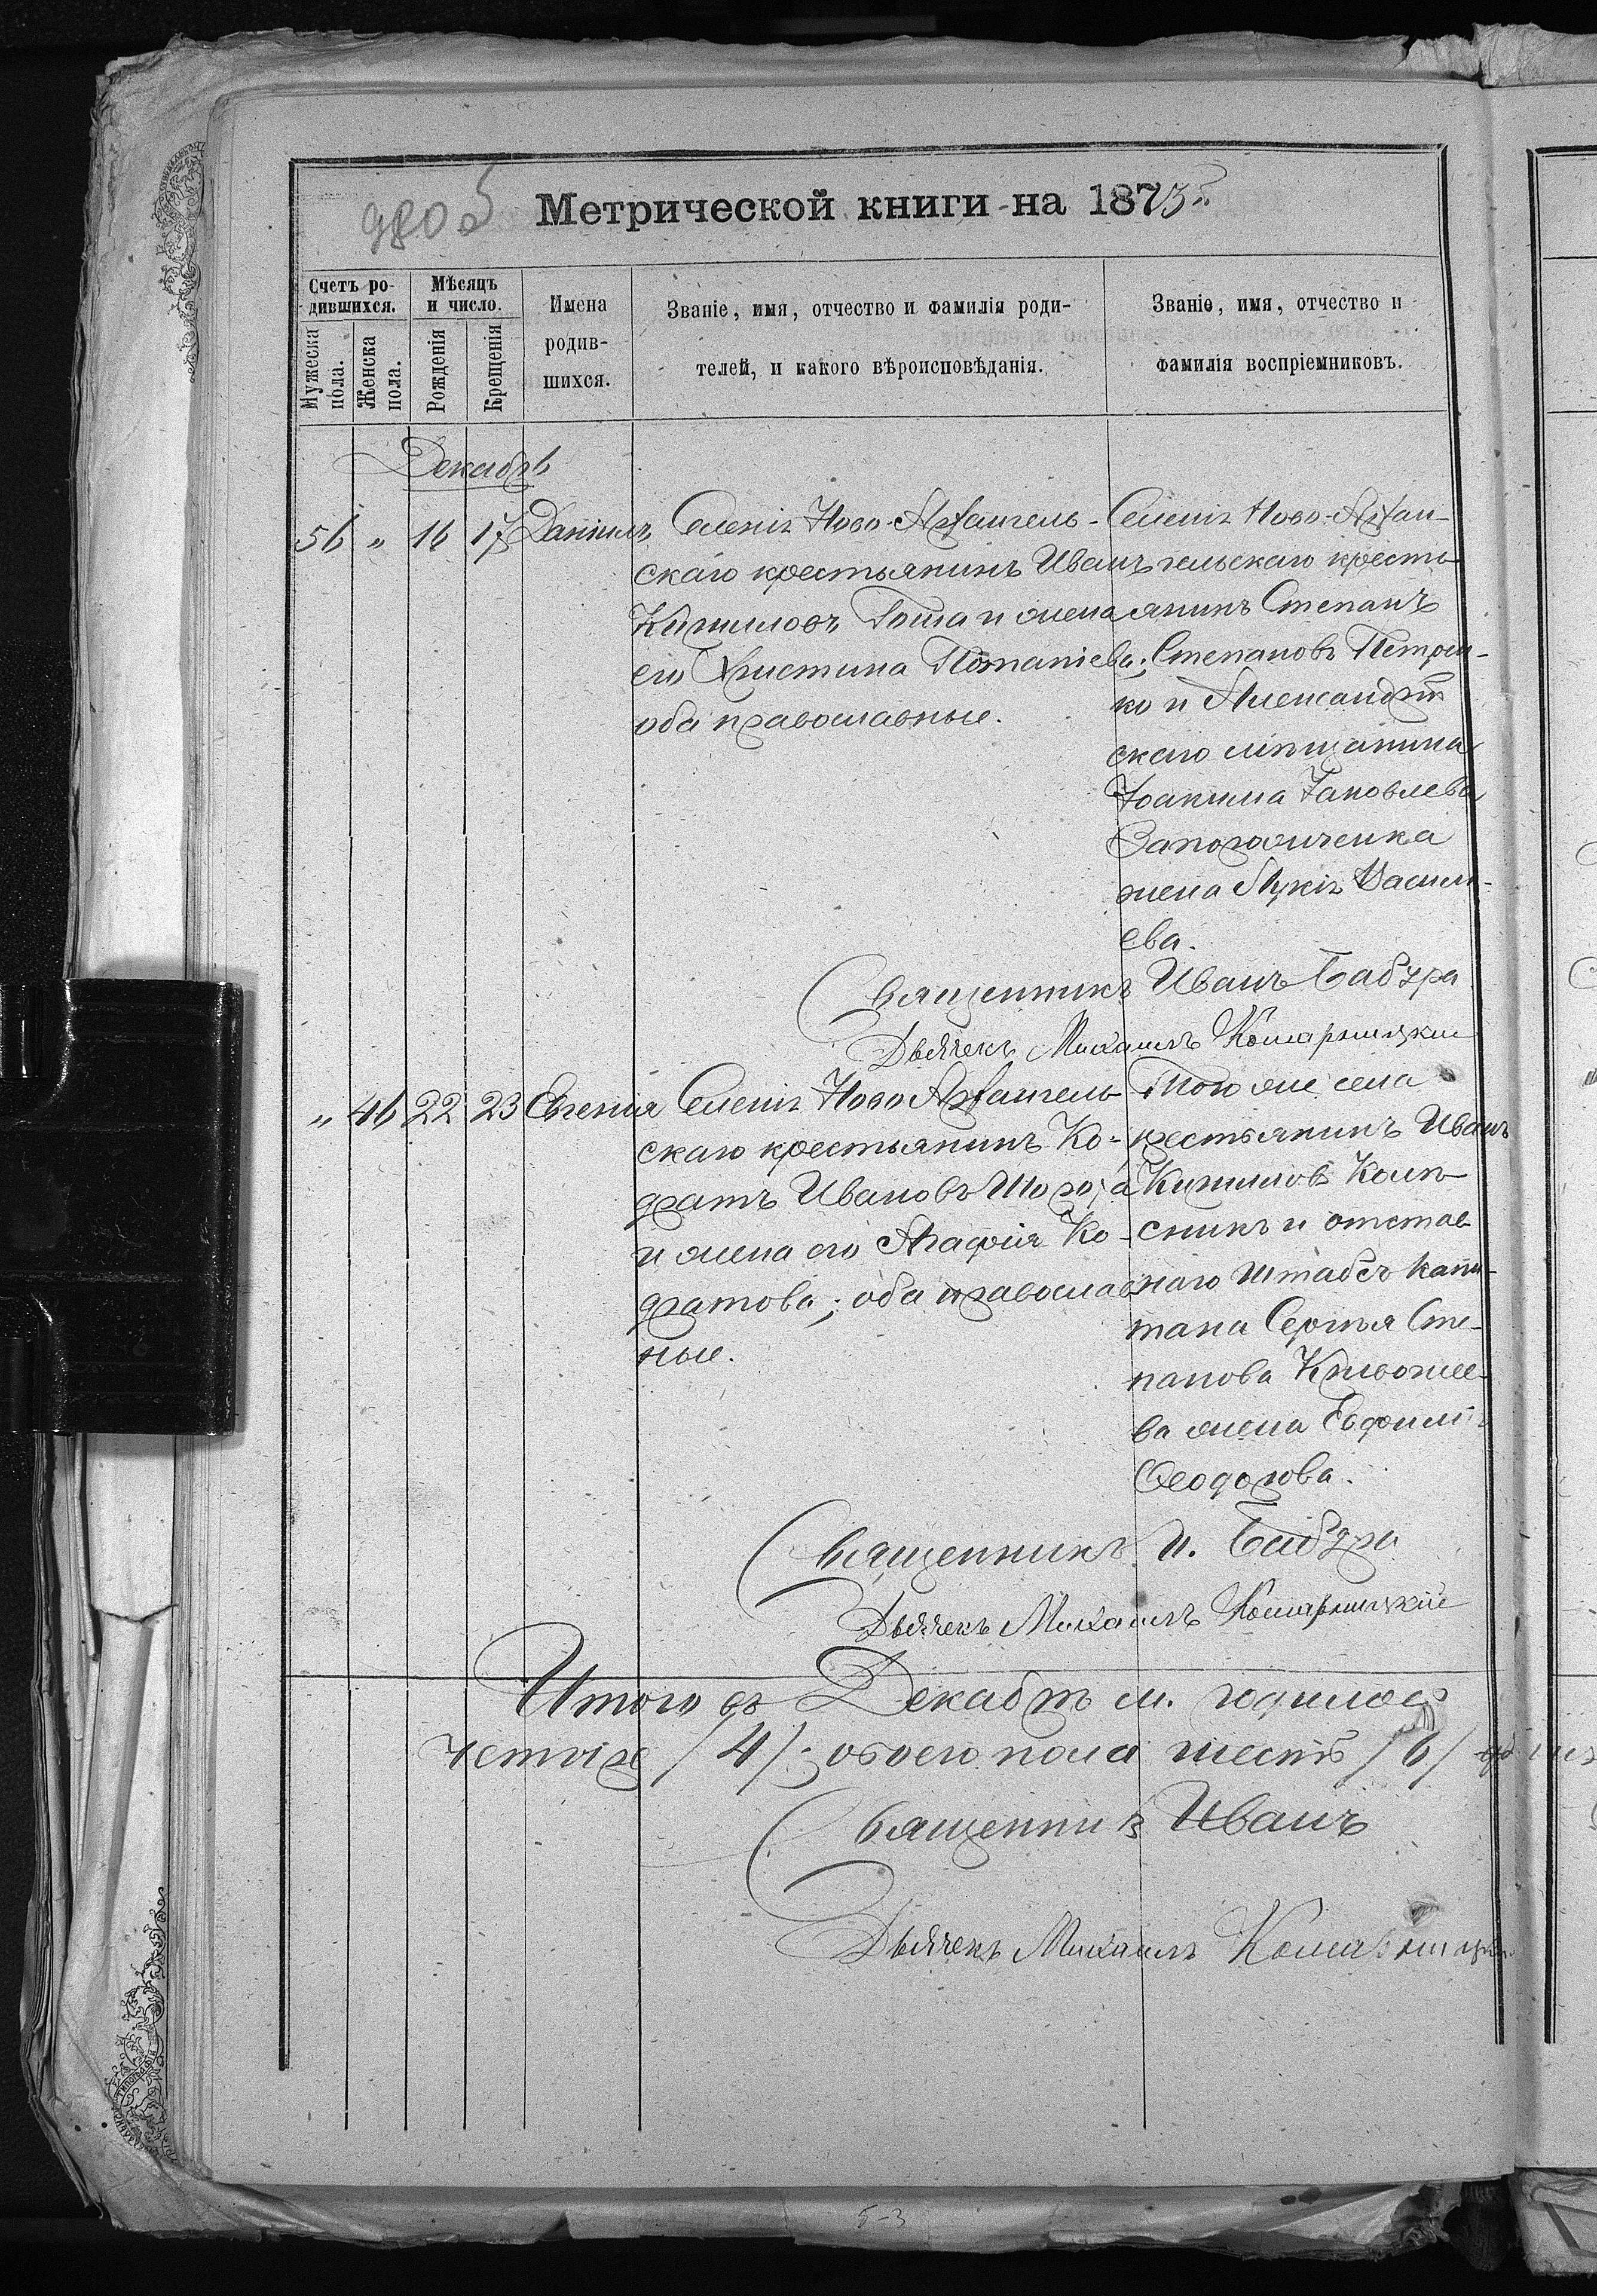 9805
Метрической книги на 1875
Счетъ ро-
дившихся.
Мужеска
пола.
Женска
пола.
Мѣсяцъ
и число.
Рожденія
Крещенія
Имена
родив-
шихся.
Званіе, имя, отчество и фамилія роди-
телей, и какого вѣроисповѣданія.
Званіе, имя, отчество и
фамилія воспріемниковъ.
Декабрь
56 " 16 17 Даніилъ
Селенія Ново-Архангель-
скаго крестьянинъ Иванъ
Кириловъ Гоша и жена
его Христина Потапіева;
оба православные.
Селенія Ново-Архан-
гельскаго кресть-
янинъ Степанъ
Степановъ Петрен-
ко и Александрій
скаго мѣщанина
Іоакима Іаковлева
Запорожченка
жена Лукія Василь-
ева.
Священникъ Иванъ Бабура
Дьячекъ Михаилъ Комарницкий
" 46 22 23 Евгенія
Селенія Ново Архангель
скаго крестьянинъ Ко-
дратъ Ивановъ
и жена его Агафія Ко-
дратова; оба православ
ные.
Того же села
крестьянинъ Иванъ
Кириловъ Колѣ-
сникъ и отстав
наго Штабсъ Капи-
тана Сергѣя Сте-
панова
ва жена Евфимія
Ѳеодорова.
Священникъ И. Бабура
Дьячекъ Михаилъ Комарницкій
Итого въ Декабрѣ м. родилось
четыре /4/; обоего пола шесть /6/
Священникъ Иванъ
Дьячекъ Михаилъ Комарницкий
5-3